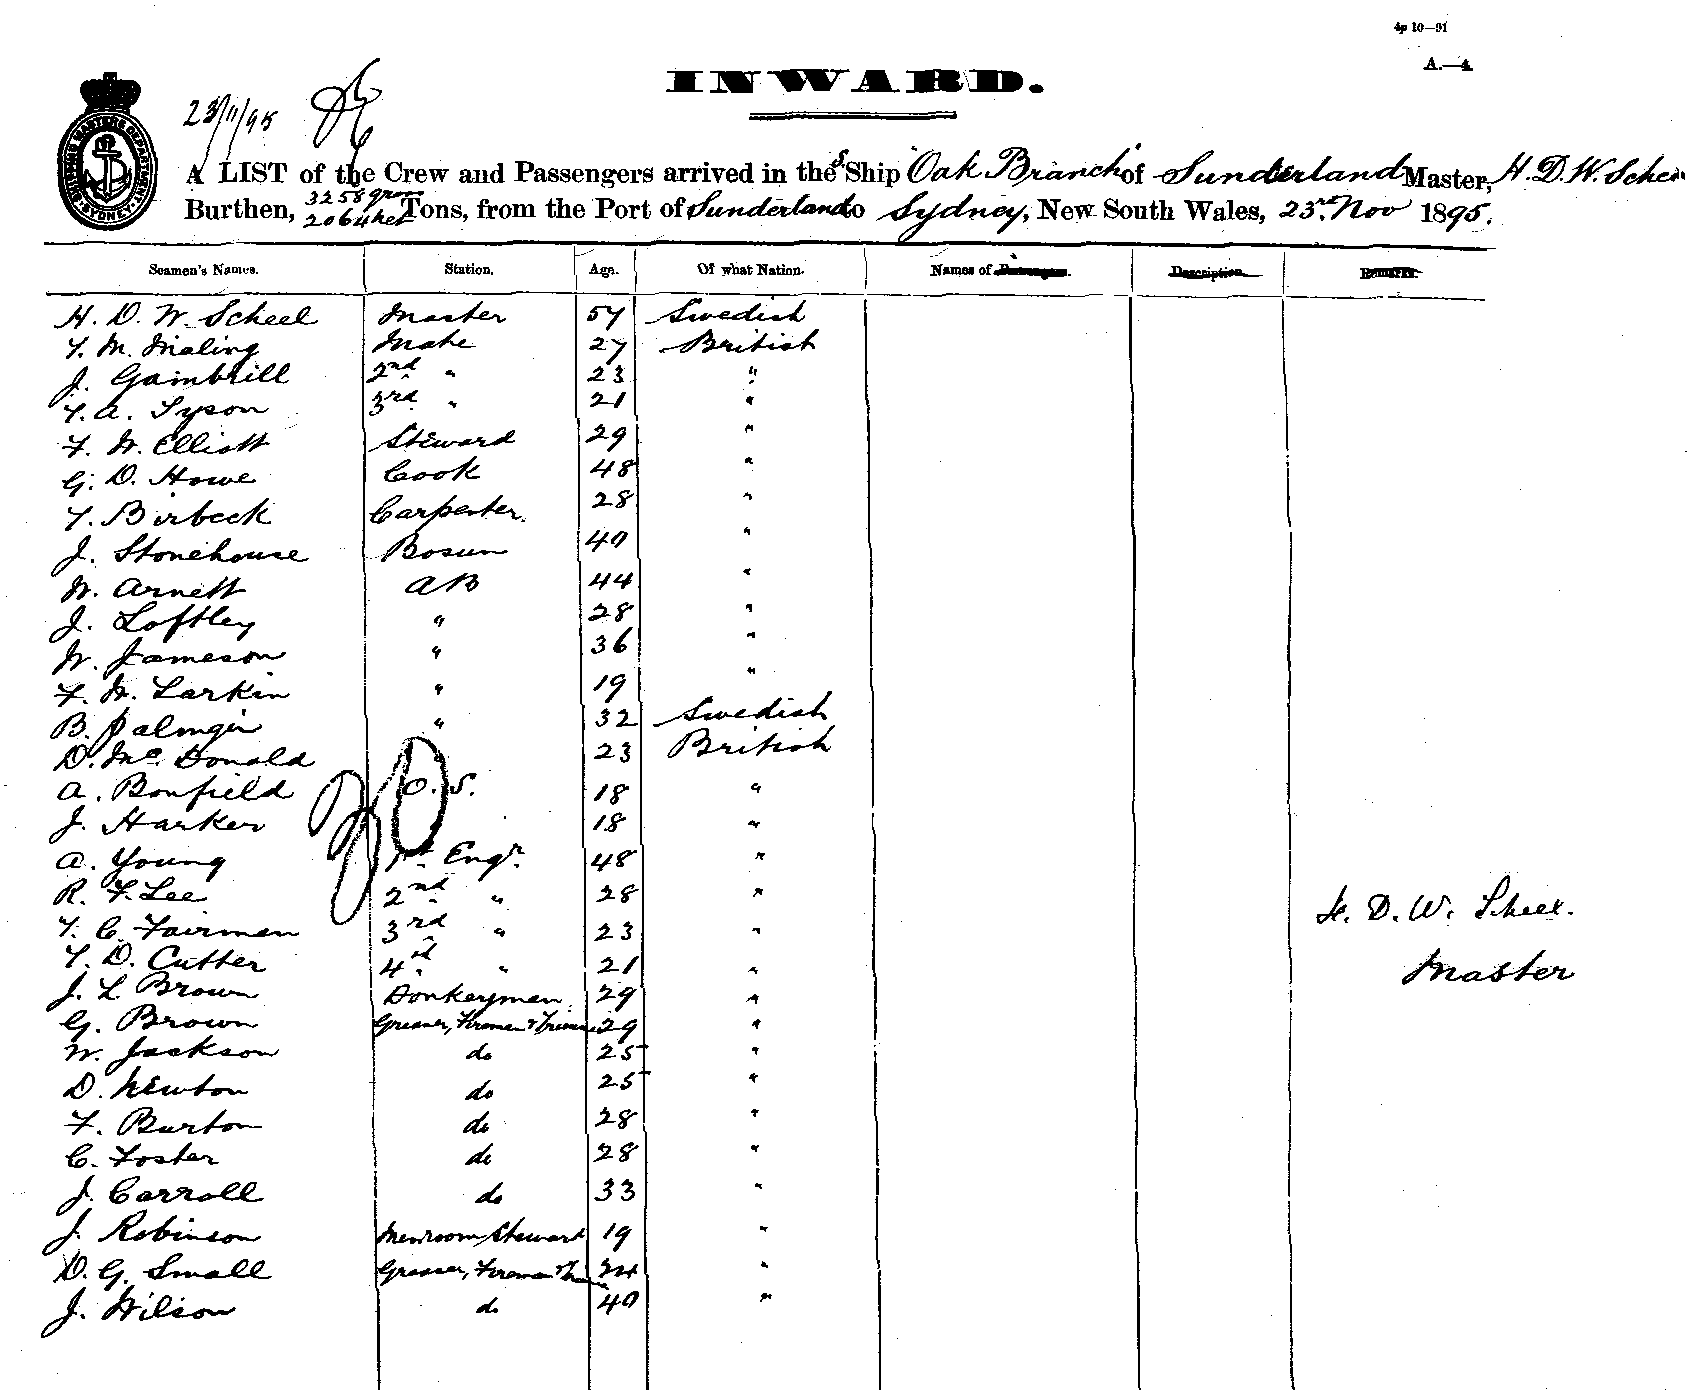 4p 10—91
A.—4.
INWARD.
SHIPPING MASTERS DEPARTMENT SYDNEY
23/11/95
A LIST of the Crew and Passengers arrived in the S. Ship "Oak Branch" of Sunderland Master, H. D. W. Scheel
Burthen, 3258 gross 2064 net Tons, from the Port of Sunderland to Sydney, New South Wales, 23rd Nov 1895.
Seamen's Names. Station. Age. Of what Nation. Names of Passengers. Description. Remarks.
H. D. W. Scheel Master 57 Swedish
T. M. Maling Mate 27 British
J. Gambrill 2nd " 23 "
T. A. Tyson 3rd " 21 "
F. W. Elliott Steward 29 "
G. D. Howe Cook 48 "
T. Birbeck Carpenter. 28 "
J. Stonehouse Bosun 40 "
W. Arnett AB 44 "
J. Loftley " 28 "
W. Jameson " 36 "
F. W. Larkin " 19 "
B. " 32 Swedish
D. Mc Donald " 23 British
A. Bonfield O. S. 18 "
J. Harker 18 "
A. Young 1st Engr. 48 "
R. F. Lee 2nd " 28 "
T. C. Fairman 3rd " 23 "
T. D. Cutter 4th " 21 "
J. L Brown Donkeyman 29 "
G. Brown Greaser, Fireman & Trimmer 29 "
W. Jackson do 25 "
D. Newton do 25 "
F. Burton do 28 "
C. Foster do 28 "
J. Carroll do 33 "
J. Robinson Messroom Steward 19 "
D. G. Small Greaser, Fireman & Trimmer 24 "
J. Wilson do 40 "
30
H. D. W. Scheel.
Master